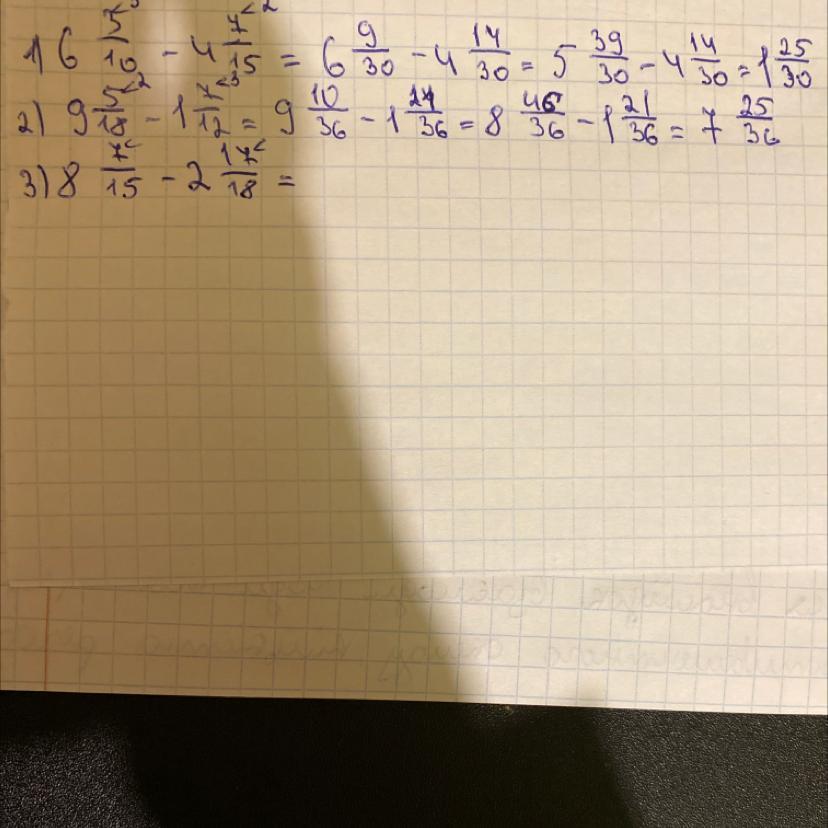 1) 6 5/10 - 4 7/15 = 6 9/30 - 4 14/30 = 5 39/30 - 4 14/30 = 1 25/30
2) 9 5/18 - 1 7/12 = 9 10/36 - 1 21/36 = 8 46/36 - 1 21/36 = 7 25/36
3) 8 7/15 - 2 17/18 =